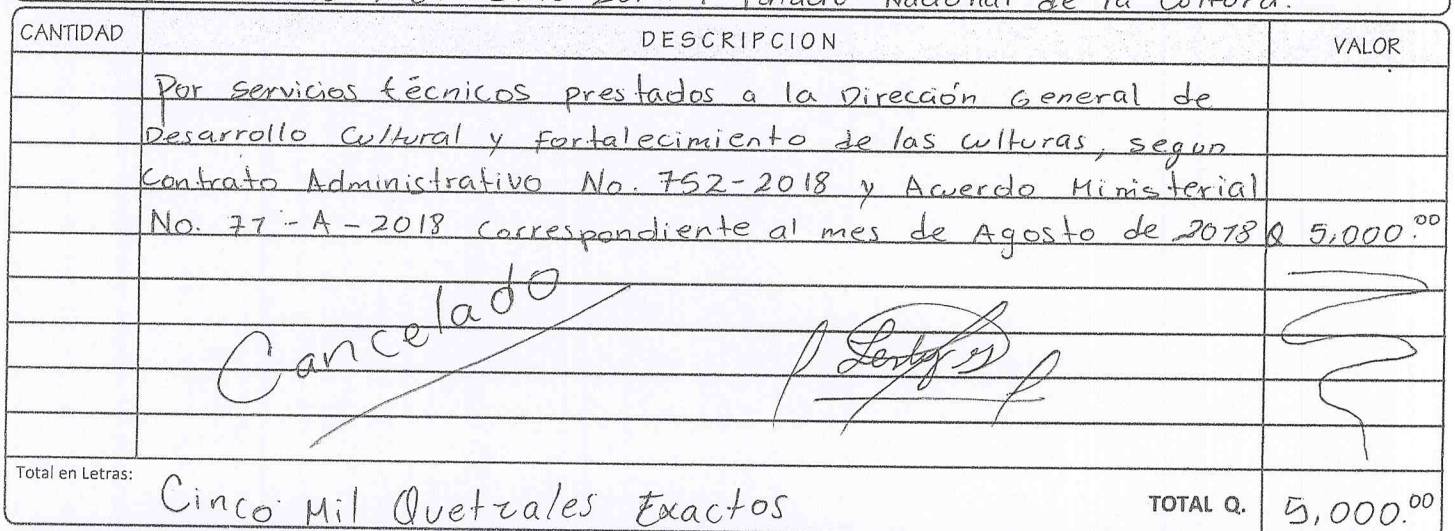 Nacional de la Cultura.
CANTIDAD DESCRIPCION VALOR
Por servicios técnicos prestados a la Dirección General de
Desarrollo Cultural y Fortalecimiento de las Culturas, segun
Contrato Administrativo No. 752-2018 y Acuerdo Ministerial
No. 77-A-2018 Correspondiente al mes de Agosto de 2018 Q 5,000.00
Cancelado
Total en Letras: Cinco Mil Quetzales Exactos TOTAL Q. 5,000.00